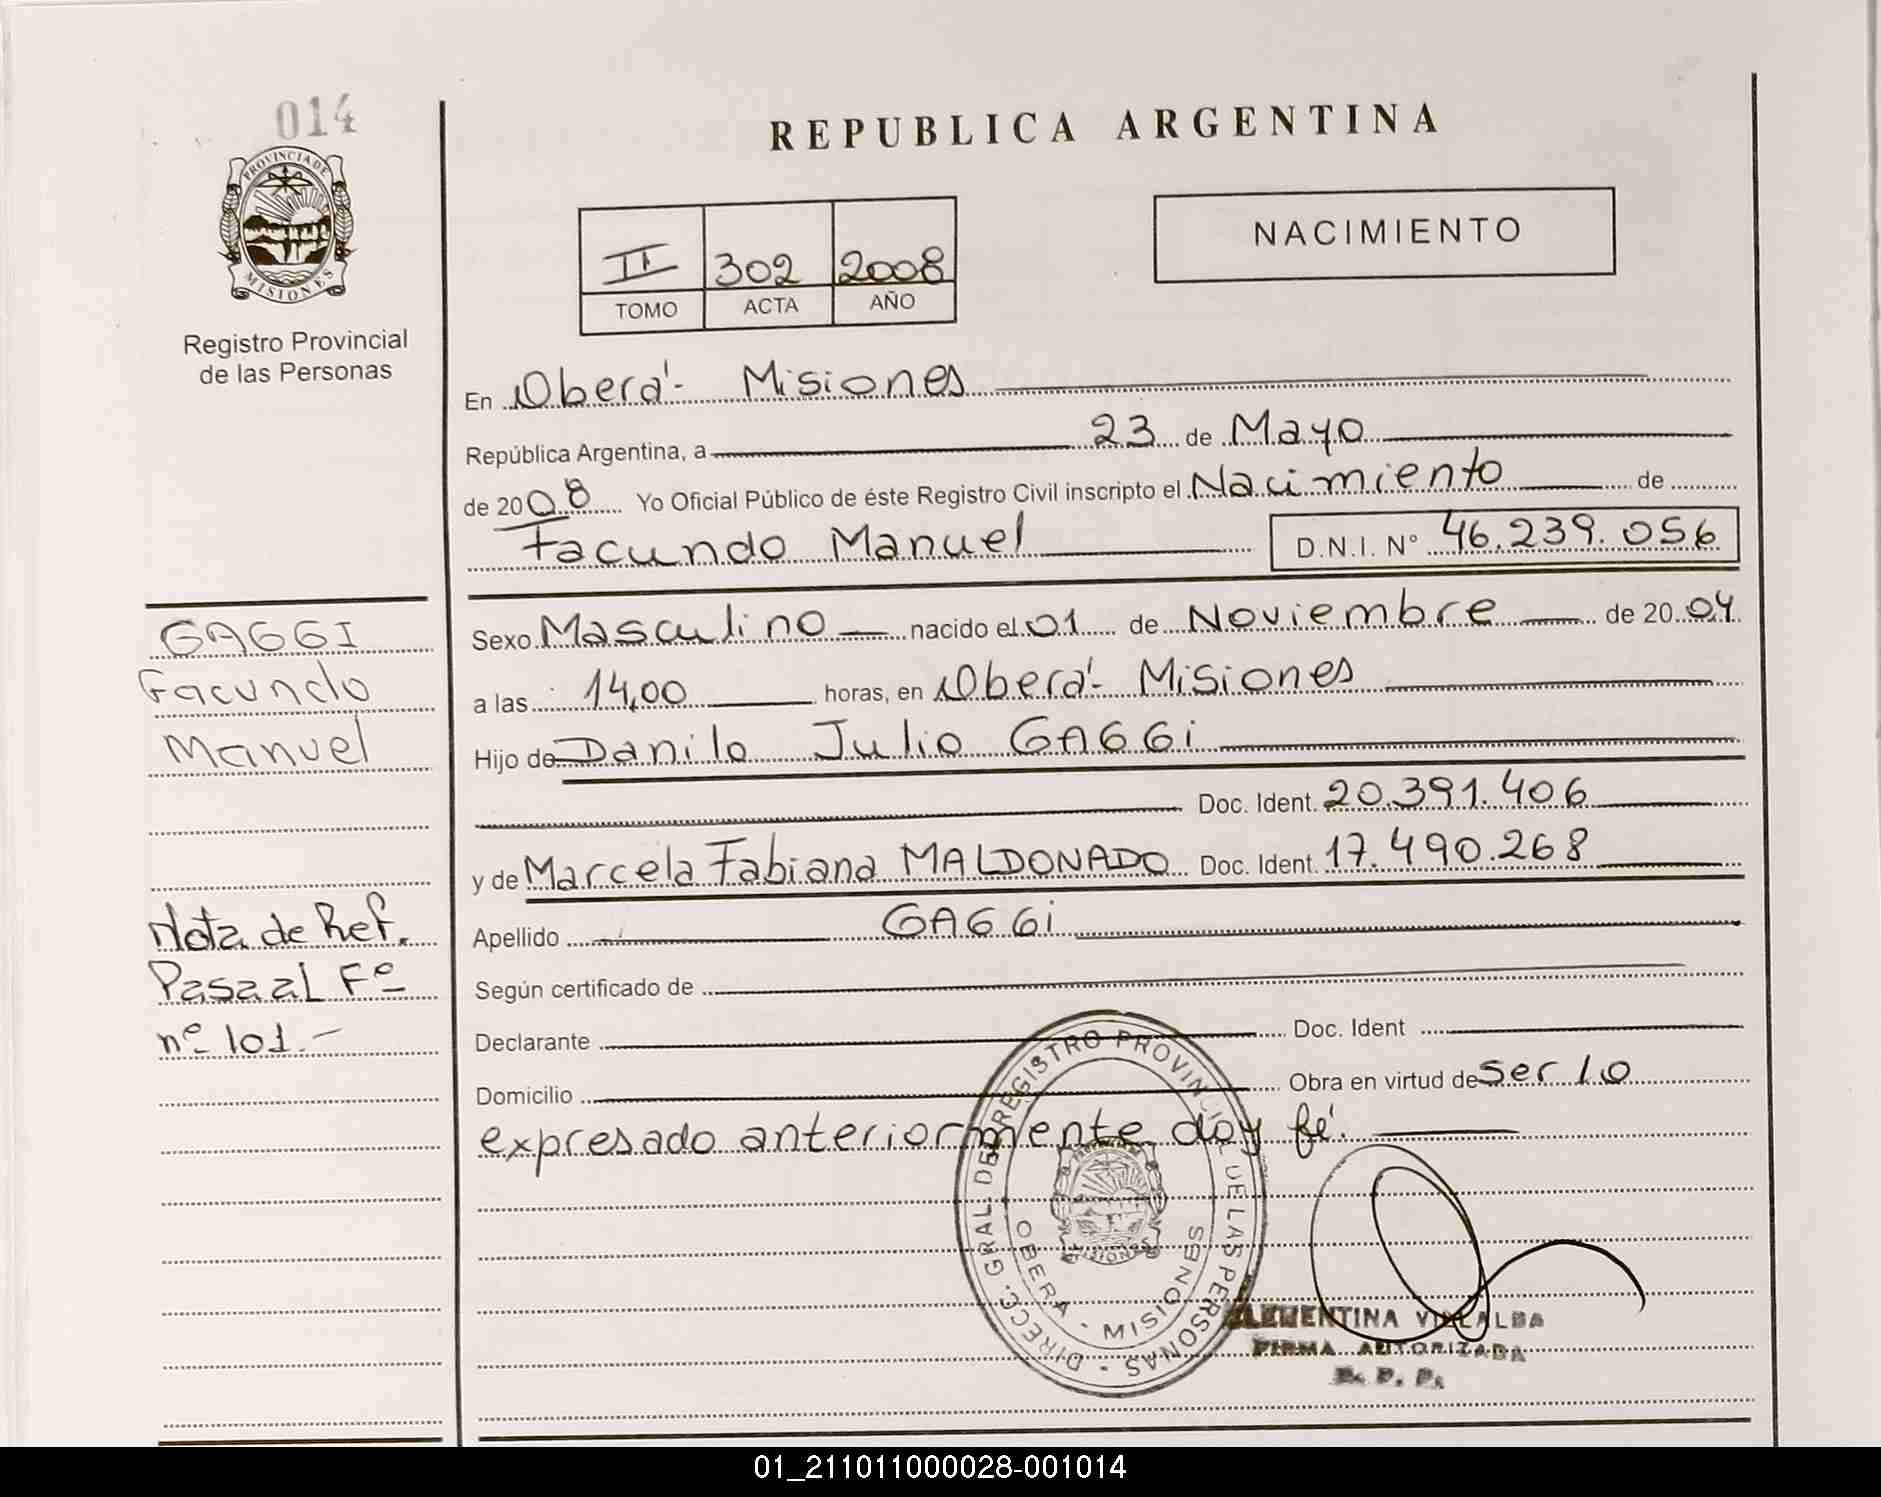 014
PROVINCIA DE
MISIONES
Registro Provincial
de las Personas
REPUBLICA ARGENTINA
II 302 2008
TOMO ACTA AÑO
NACIMIENTO
En Oberá - Misiones
República Argentina, a 23 de Mayo
de 2008 Yo Oficial Público de éste Registro Civil inscripto el Nacimiento de
Facundo Manuel D.N.I. N° 46.239.056
Sexo Masculino nacido el 01 de Noviembre de 20 04
a las 14,00 horas, en Oberá - Misiones
Hijo de Danilo Julio GAGGi
Doc. Ident. 20.391.406
y de Marcela Fabiana MALDONADO Doc. Ident. 17.490.268
Apellido GAGGi
Según certificado de
Declarante Doc. Ident
Domicilio Obra en virtud de ser lo
expresado anteriormente doy fé.
GAGGI
Facundo
Manuel
Nota de Ref.
Pasa al Fº
nº 101.-
DIRECC. GRAL. DEL REGISTRO PROVINCIAL DE LAS PERSONAS
OBERA - MISIONES
MISIONES
CLEMENTINA VILLALBA
FIRMA AUTORIZADA
R. P. P.
01_211011000028-001014